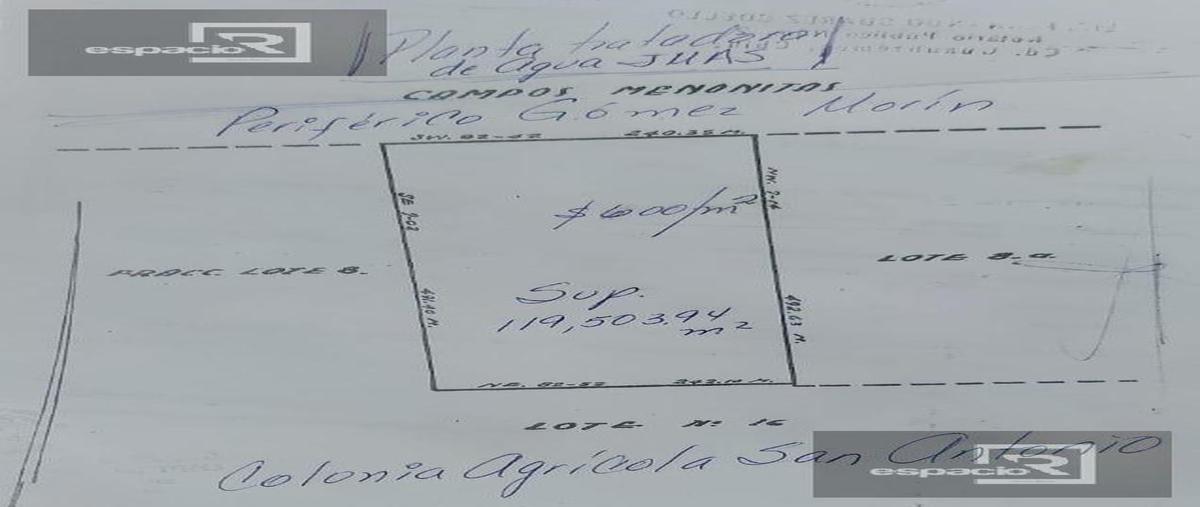 espacio R
Planta tratadora
de agua JMAS
CAMPOS MENONITAS
Periférico Gómez Morín
SW. 82-52 240.35 M.
NW. 7-14
SE 7-02
$600/m²
FRACC. LOTE 8.
LOTE 8-a.
Sup.
491.40 M.
492.63 M.
119,503.94
m²
NE. 82-52 242.10 M.
LOTE Nº 16
Colonia Agrícola San Antonio
espacio R